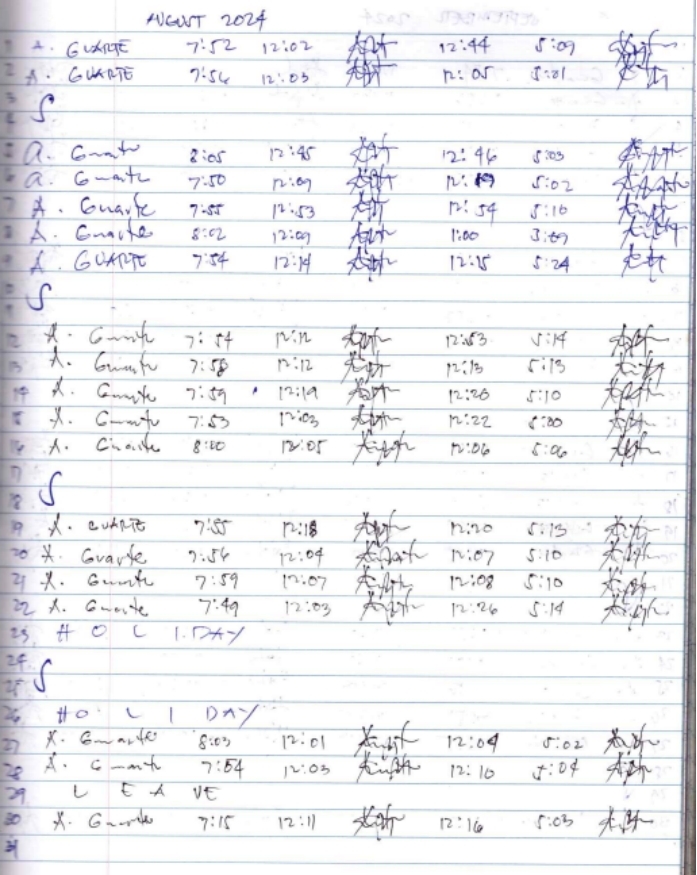 AUGUST 2024
1 A. GUARTE 7:52 12:02 12:44 5:09
2 A. GUARTE 7:56 12:03 12:05 5:01
3 S
4
5 A. Guarte 8:05 12:45 12:46 5:03
6 A. Guarte 7:50 12:09 12:19 5:02
7 A. Guarte 7:55 12:53 12:54 5:10
8 A. Guarte 8:02 12:09 1:00 5:09
9 A. GUARTE 7:54 12:14 12:15 5:24
10 S
11
12 A. Guarte 7:54 12:12 12:53 5:14
13 A. Guarte 7:58 12:12 12:13 5:13
14 A. Guarte 7:59 12:19 12:20 5:10
15 A. Guarte 7:53 12:03 12:22 5:00
16 A. Guarte 8:00 12:05 12:06 5:06
17
18 S
19 A. GUARTE 7:55 12:18 12:20 5:13
20 A. Guarte 7:56 12:04 12:07 5:10
21 A. Guarte 7:59 12:07 12:08 5:10
22 A. Guarte 7:49 12:03 12:26 5:14
23 HOLIDAY
24
25 S
26 HOLIDAY
27 A. Guarte 8:03 12:01 12:04 5:02
28 A. Guarte 7:54 12:03 12:10 5:04
29 LEAVE
30 A. Guarte 7:15 12:11 12:16 5:03
31